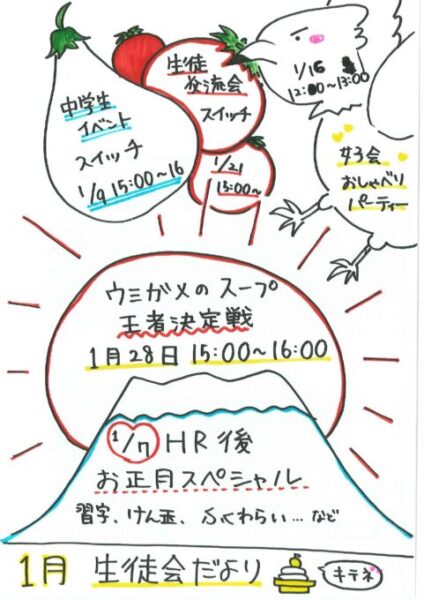 中学生
イベント
スイッチ
1/9 15:00~16
生徒
交流会
スイッチ
1/21
15:00~
1/16
12:00~13:00
女子会
おしゃべり
パーティー
ウミガメのスープ
王者決定戦
1月28日 15:00~16:00
1/7 HR後
お正月スペシャル
習字、けん玉、ふくわらい…など
1月 生徒会だより
キテネ